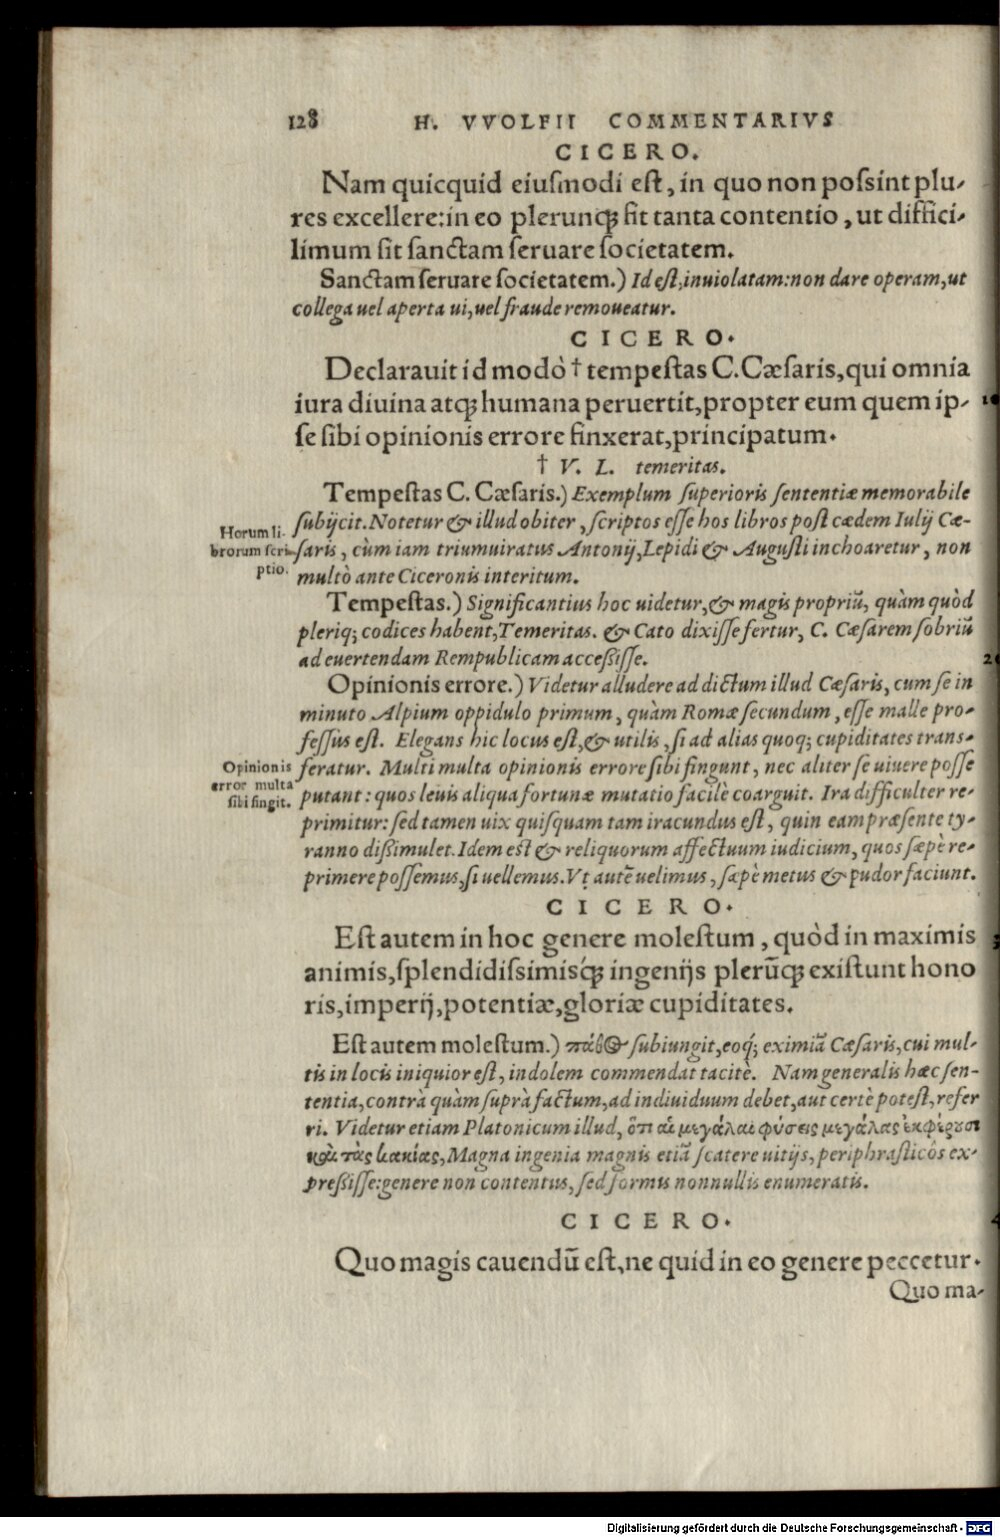 128 H. VVOLFII COMMENTARIVS
CICERO.
Nam quicquid eiuſmodi eſt, in quo non poſsint plu-
res excellere: in eo plerunq; fit tanta contentio, ut diffici-
limum ſit ſanctam ſeruare ſocietatem.
Sanctam ſeruare ſocietatem.) Id eſt, inuiolatam: non dare operam, ut
collega uel aperta ui, uel fraude remoueatur.
CICERO.
Declarauit id modò † tempeſtas C. Cæſaris, qui omnia
iura diuina atq; humana peruertit, propter eum quem ip-
ſe ſibi opinionis errore finxerat, principatum.
† V. L. temeritas.
Tempeſtas C. Cæſaris.) Exemplum ſuperioris ſententiæ memorabile
ſubijcit. Notetur & illud obiter, ſcriptos eſſe hos libros poſt cædem Iulij Cæ-
ſaris, cùm iam triumuiratus Antonij, Lepidi & Auguſti inchoaretur, non
multò ante Ciceronis interitum.
Horum li-
brorum ſcri-
ptio.
Tempeſtas.) Significantius hoc uidetur, & magis propriũ, quàm quòd
pleriq; codices habent, Temeritas. & Cato dixiſſe fertur, C. Cæſarem ſobriũ
ad euertendam Rempublicam acceſsiſſe.
Opinionis errore.) Videtur alludere ad dictum illud Cæſaris, cum ſe in
minuto Alpium oppidulo primum, quàm Romæ ſecundum, eſſe malle pro-
feſſus eſt. Elegans hic locus eſt, & utilis, ſi ad alias quoq; cupiditates trans-
feratur. Multi multa opinionis errore ſibi fingunt, nec aliter ſe uiuere poſſe
putant: quos leuis aliqua fortunæ mutatio facilè coarguit. Ira difficulter re-
primitur: ſed tamen uix quiſquam tam iracundus eſt, quin eam præſente ty-
ranno diſsimulet. Idem eſt & reliquorum affectuum iudicium, quos ſæpè re-
primere poſſemus, ſi uellemus. Vt autẽ uelimus, ſæpè metus & pudor faciunt.
Opinionis
error multa
ſibi fingit.
CICERO.
Eſt autem in hoc genere moleſtum, quòd in maximis
animis, ſplendidiſsimisq́; ingenijs plerũq; exiſtunt hono
ris, imperij, potentiæ, gloriæ cupiditates.
Eſt autem moleſtum.) πάθος ſubiungit, eoq́; eximiã Cæſaris, cui mul-
tis in locis iniquior eſt, indolem commendat tacitè. Nam generalis hæc ſen-
tentia, contrà quàm ſuprà factum, ad indiuiduum debet, aut certè poteſt, refer
ri. Videtur etiam Platonicum illud, ὅτι αἱ μεγάλαι φύσεις μεγάλας ἐκφέρουσι
καὶ τὰς κακίας, Magna ingenia magnis etiã ſcatere uitijs, periphraſticôs ex-
preſsiſſe: genere non contentus, ſed formis nonnullis enumeratis.
CICERO.
Quo magis cauendũ eſt, ne quid in eo genere peccetur.
Quo ma-
Digitalisierung gefördert durch die Deutsche Forschungsgemeinschaft - DFG